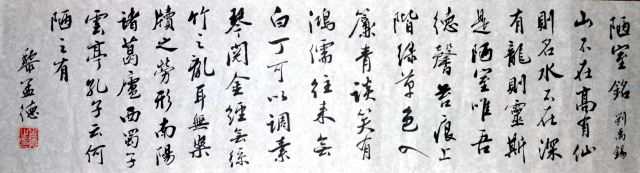 陋室銘 劉禹錫
山不在高有仙
則名水不在深
有龍則靈斯
是陋室唯吾
德馨苔痕上
階綠草色入
簾青談笑有
鴻儒往来無
白丁可以調素
琴閱金經無絲
竹之亂耳無案
牘之勞形南陽
諸葛廬西蜀子
雲亭孔子云何
陋之有
黎孟德